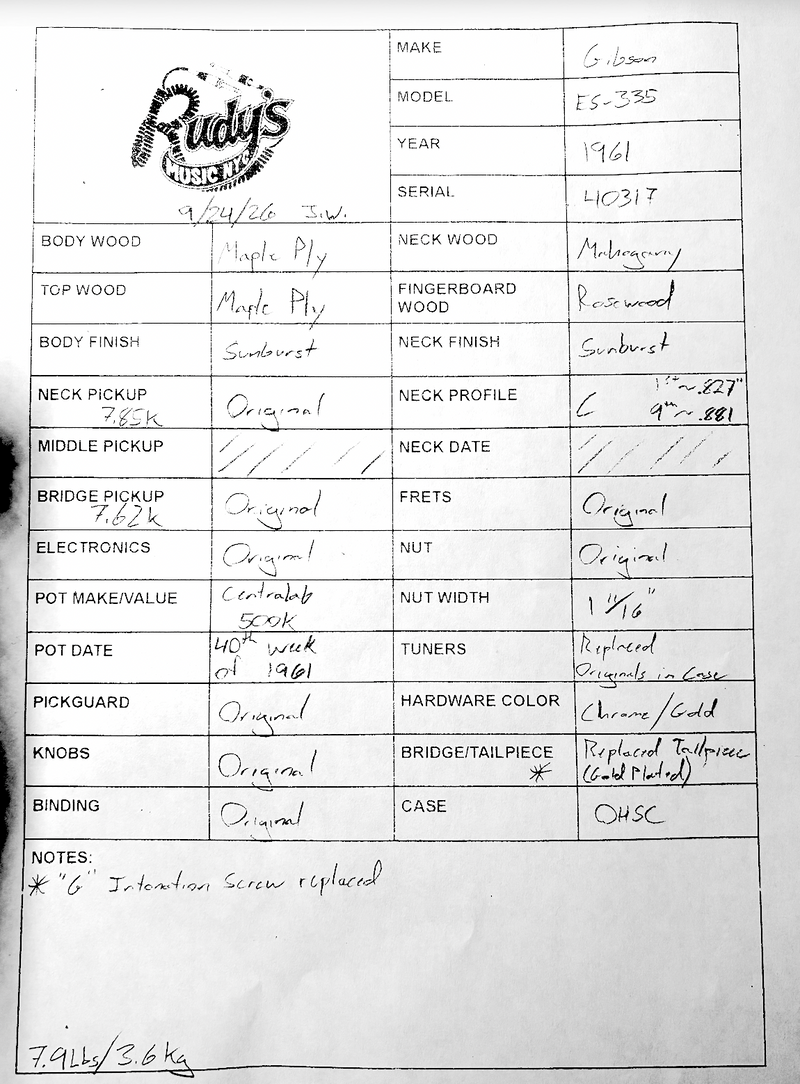 Rudy's
MUSIC NYC
9/24/26 J.W.
MAKE Gibson
MODEL ES-335
YEAR 1961
SERIAL 40317
BODY WOOD Maple Ply
NECK WOOD Mahogany
TOP WOOD Maple Ply
FINGERBOARD WOOD Rosewood
BODY FINISH Sunburst
NECK FINISH Sunburst
NECK PICKUP 7.85K Original
NECK PROFILE C 1st ~ .827"
9th ~ .881
MIDDLE PICKUP / / / / /
NECK DATE / / / / /
BRIDGE PICKUP 7.62K Original
FRETS Original
ELECTRONICS Original
NUT Original
POT MAKE/VALUE Centralab
500K
NUT WIDTH 1 11/16"
POT DATE 40th week
of 1961
TUNERS Replaced
Originals in Case
PICKGUARD Original
HARDWARE COLOR Chrome/Gold
KNOBS Original
BRIDGE/TAILPIECE * Replaced Tailpiece
(Gold Plated)
BINDING Original
CASE OHSC
NOTES:
* "G" Intonation Screw replaced
7.9Lbs/3.6Kg